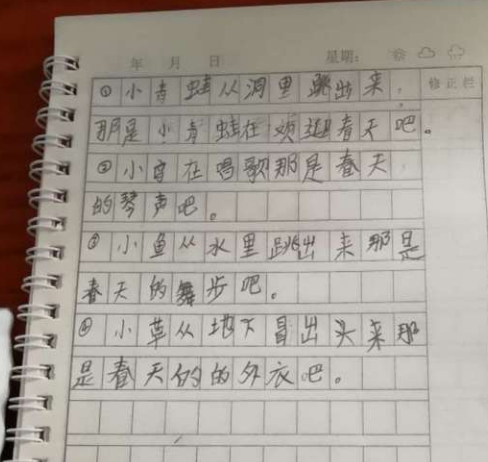 年 月 日 星期：
①小青蛙从洞里跳出来，修正栏
那是小青蛙在欢迎春天吧。
②小鸟在唱歌那是春天
的琴声吧。
③小鱼从水里跳出来那是
春天的舞步吧。
④小草从地下冒出头来那
是春天的的外衣吧。